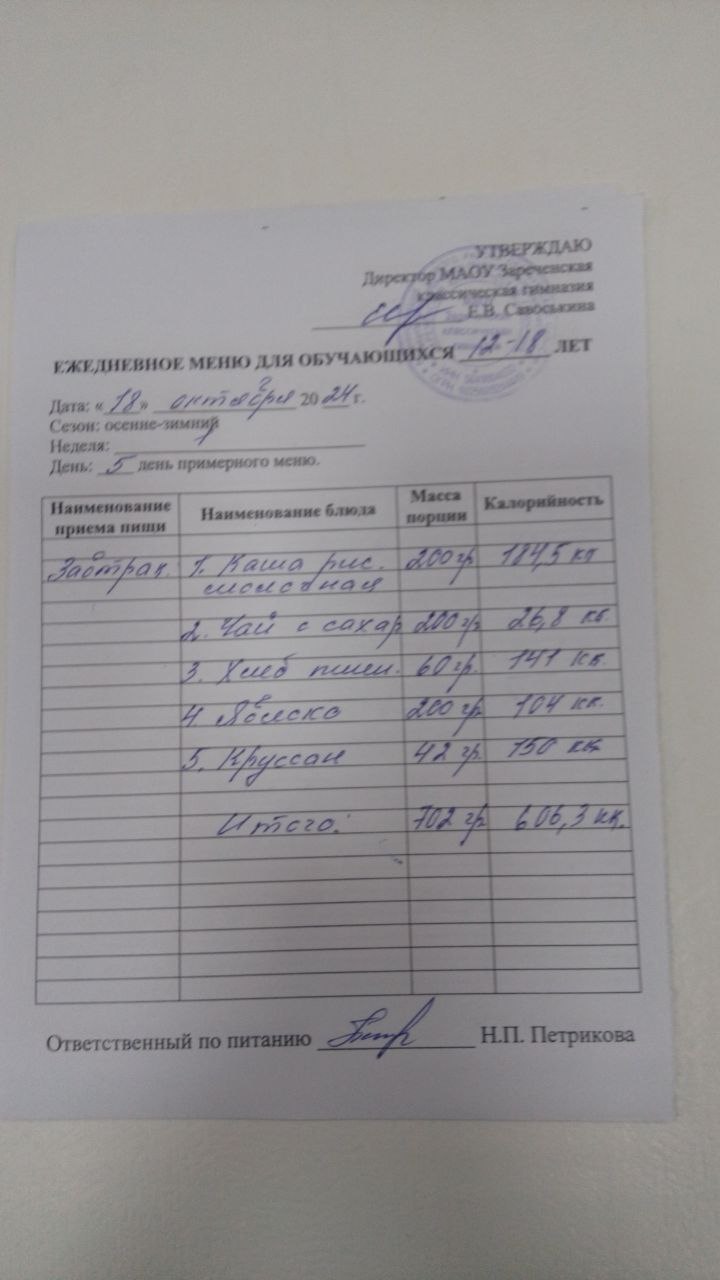 УТВЕРЖДАЮ
Директор МАОУ Зареченская
классическая гимназия
Е.В. Савоськина
ЕЖЕДНЕВНОЕ МЕНЮ ДЛЯ ОБУЧАЮЩИХСЯ 12-18 ЛЕТ
Дата: «18» октября 2024 г.
Сезон: осенне-зимний
Неделя:
День: 5 день примерного меню.
Наименование приема пищи Наименование блюда Масса порции Калорийность
Завтрак 1. Каша рис. 200 гр 184,5 кк
молочная
2. Чай с сахар 200 гр 26,8 кк.
3. Хлеб пшен. 60 гр. 141 кк.
4 Яблоко 200 гр 104 кк.
5. Круссан 42 гр. 150 кк
Итого: 702 гр 606,3 кк.
Ответственный по питанию Н.П. Петрикова